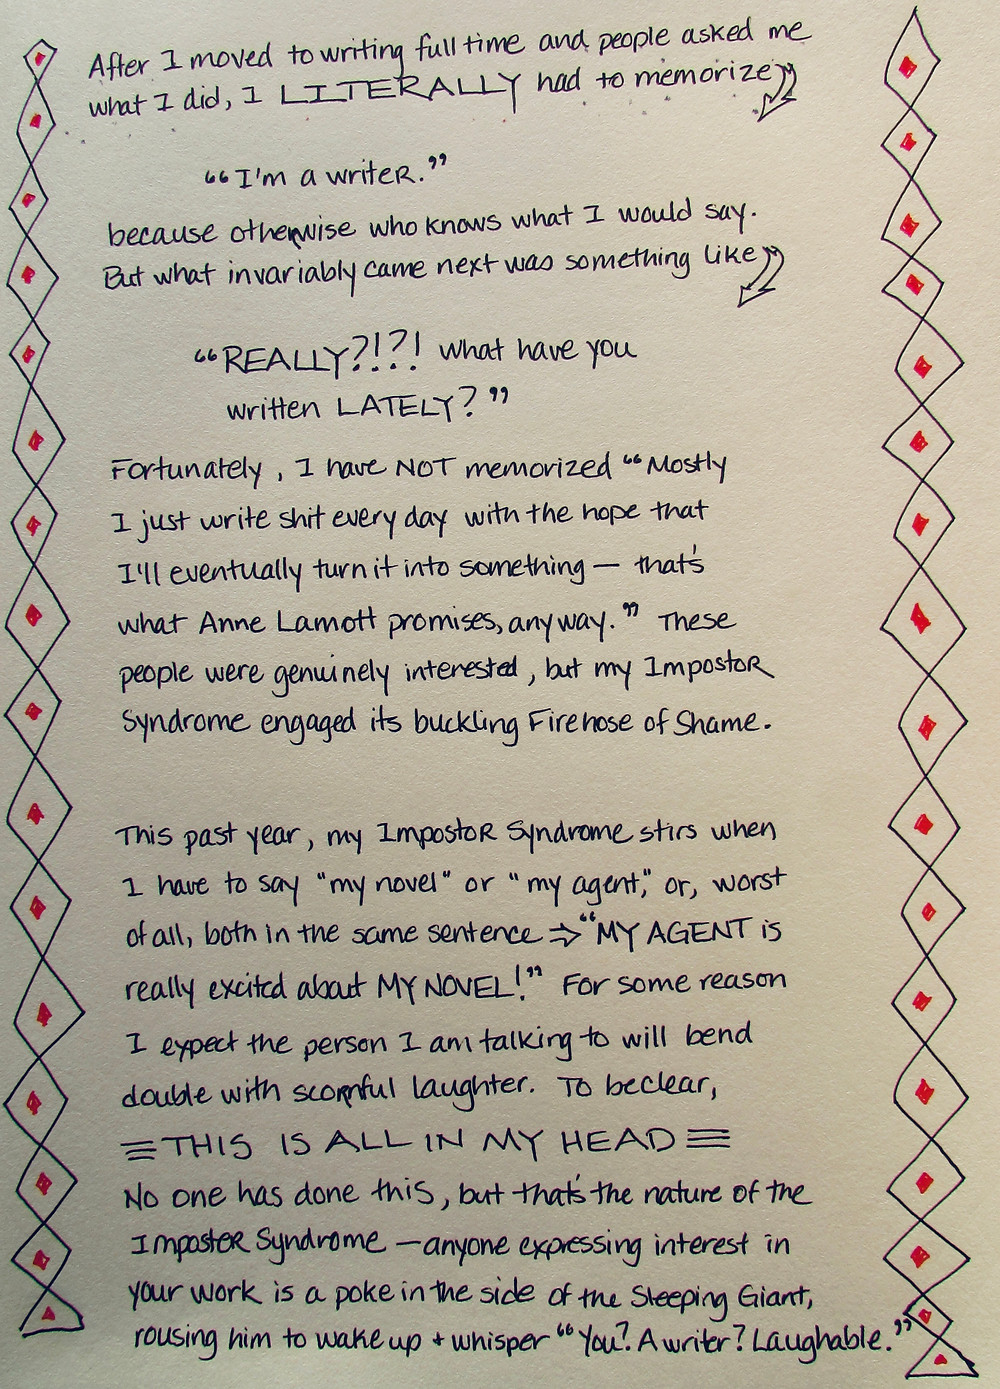 After I moved to writing full time and people asked me
what I did, I LITERALLY had to memorize
“I'm a writer.”
because otherwise who knows what I would say.
But what invariably came next was something like
“REALLY?!?! what have you
written LATELY?”
Fortunately, I have NOT memorized “Mostly
I just write shit every day with the hope that
I'll eventually turn it into something — that's
what Anne Lamott promises, anyway.” These
people were genuinely interested, but my Impostor
Syndrome engaged its buckling Firehose of Shame.
This past year, my Impostor Syndrome stirs when
I have to say "my novel" or "my agent," or, worst
of all, both in the same sentence ⇒ “MY AGENT is
really excited about MY NOVEL!” For some reason
I expect the person I am talking to will bend
double with scornful laughter. To be clear,
THIS IS ALL IN MY HEAD
No one has done this, but that's the nature of the
Imposter Syndrome — anyone expressing interest in
your work is a poke in the side of the Sleeping Giant,
rousing him to wake up + whisper “You? A writer? Laughable.”